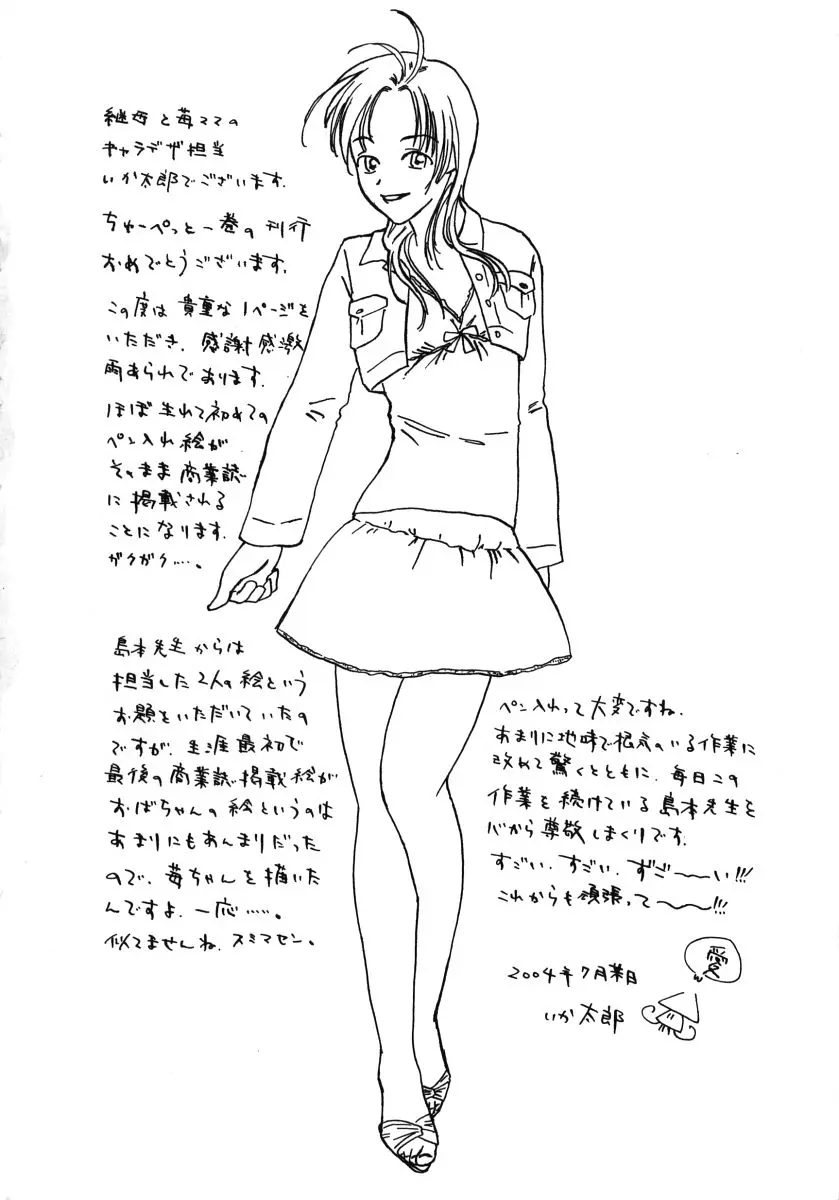 継母と苺ママの
キャラデザ担当
いか太郎でございます.
ちゅーぺっと一巻の刊行
おめでとうございます.
この度は貴重な1ページを
いただき.感謝感激
雨あられであります.
ほぼ生れて初めての
ペン入れ絵が
そのまま商業誌
に掲載される
ことになります.
ガクガク……。
島本先生からは
担当した2人の絵という
お題をいただいていたの
ですが.生涯最初で
最後の商業誌掲載絵が
おばちゃんの絵というのは
あまりにもあんまりだった
ので、苺ちゃんを描いた
んですよ.一応……。
似てませんね.スミマセン。
ペン入れって大変ですね.
あまりに地味で根気のいる作業に
改めて驚くとともに.毎日この
作業を続けている島本先生を
心から尊敬しまくりです.
すごい.すごい.ずご〜〜い!!!
これからも頑張って〜〜!!!
愛
2004年7月某日
いか太郎